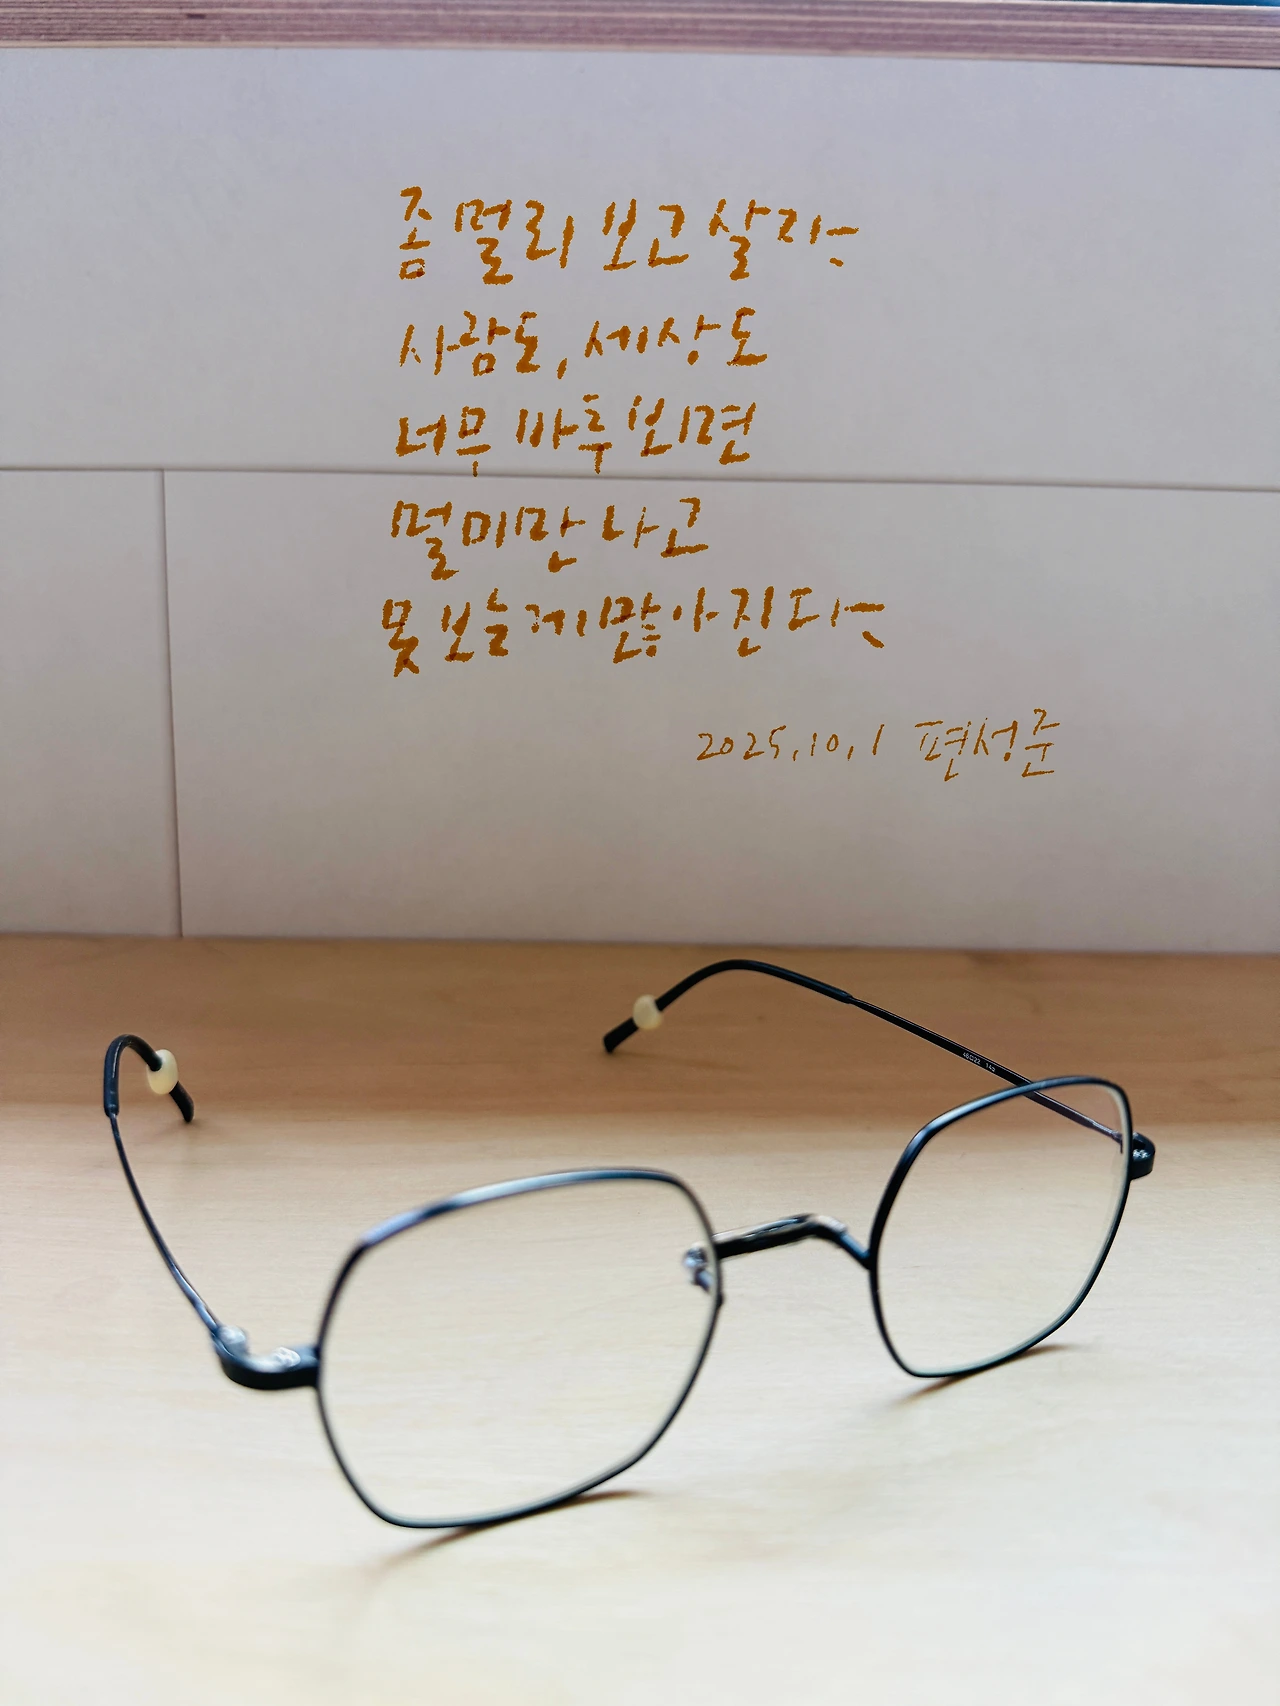 좀 멀리 보고 살자~
사람도, 세상도
너무 바투 보면
멀미만 나고
못 보는 게 많아진다~
2025.10.1 편성준